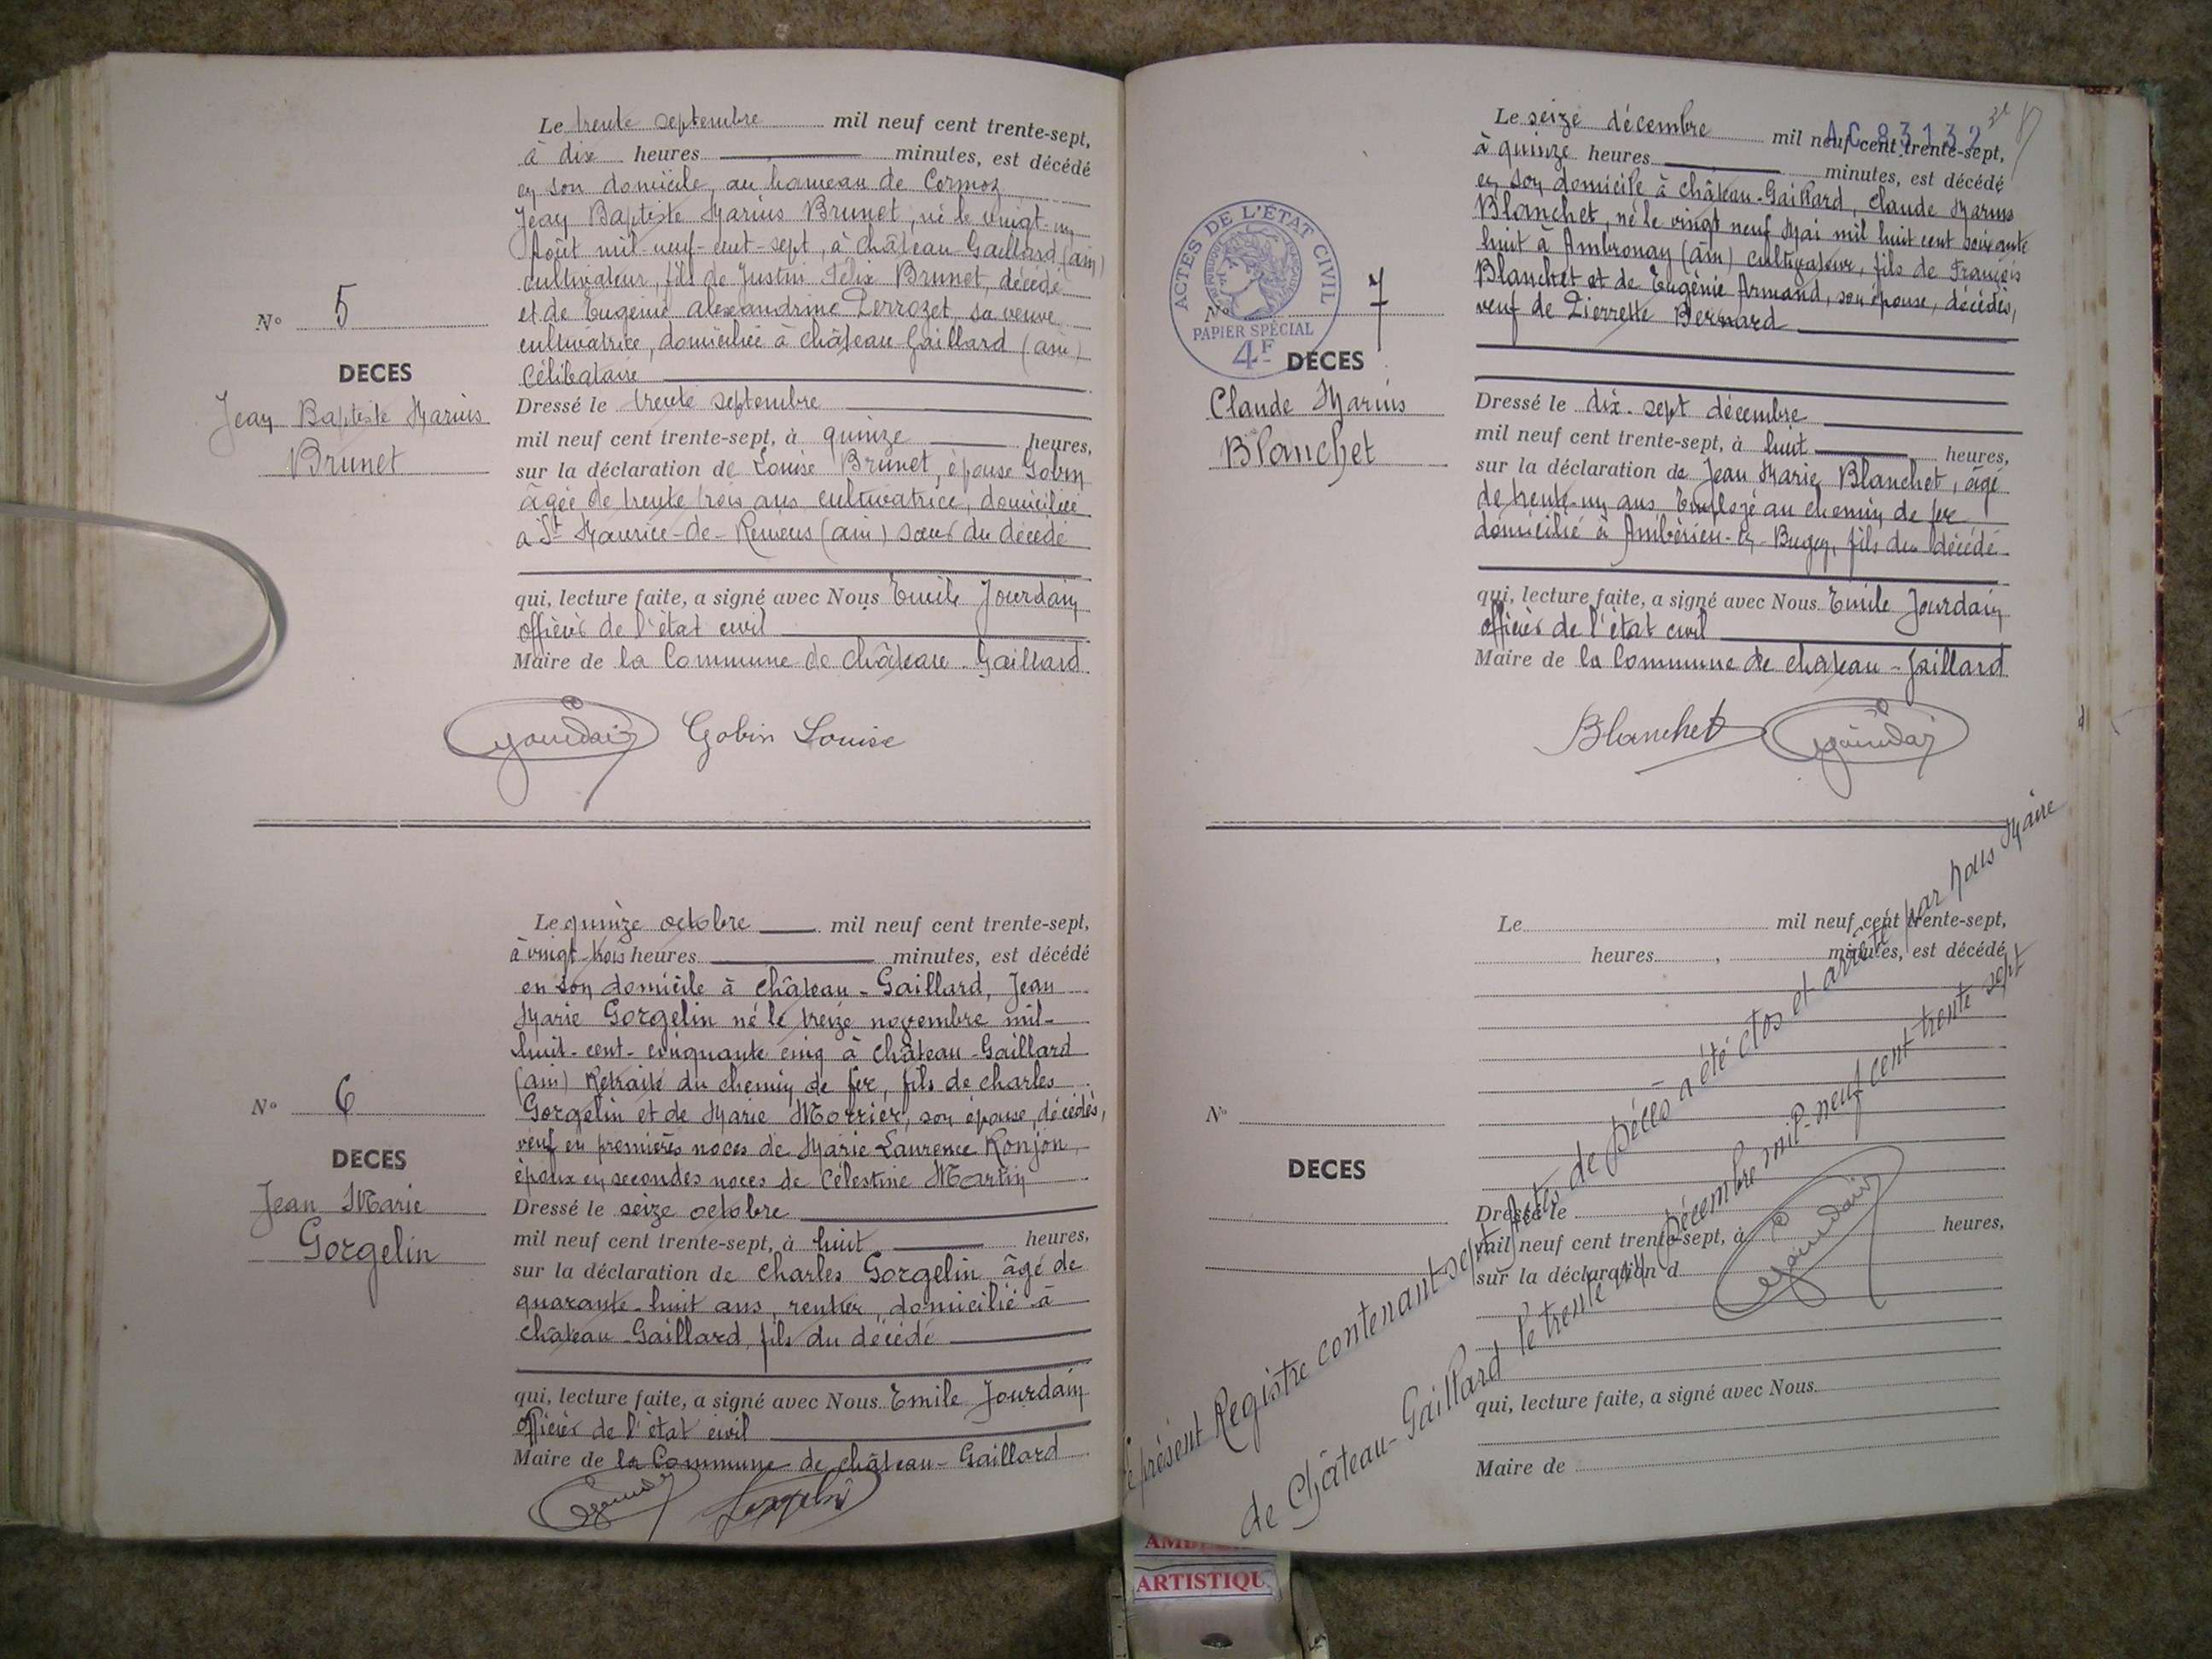 Le trente septembre mil neuf cent trente-sept,
à dix heures minutes, est décédé
en son domicile, au hameau de Cormoz
Jean Baptiste Marius Brunet, né le vingt-un
Août mil-neuf-cent-sept, à château Gaillard (ain)
cultivateur, fils de Justin Félix Brunet, décédé
et de Eugénie Alexandrine Perrozet, sa veuve
cultivatrice, domiciliée à château Gaillard (ain)
Célibataire
N° 5
DECES
Jean Baptiste Marius
Brunet
Dressé le trente septembre
mil neuf cent trente-sept, à quinze heures,
sur la déclaration de Louise Brunet, épouse Gobin
âgée de trente trois ans cultivatrice, domiciliée
à St Maurice-de-Remens (ain) sœur du décédé
qui, lecture faite, a signé avec Nous Emile Jourdain
officier de l'état civil
Maire de la Commune de château-Gaillard
Jourdain Gobin Louise
Le quinze octobre mil neuf cent trente-sept,
à vingt-trois heures minutes, est décédé
en son domicile à château-Gaillard, Jean
Marie Gorgelin né le treize novembre mil-
huit-cent-cinquante cinq à château-Gaillard
(ain) Retraité du chemin de fer, fils de charles
Gorgelin et de Marie Morrier, son épouse, décédés,
veuf en premières noces de Marie Laurence Ronjon,
époux en secondes noces de Célestine Martin
N° 6
DECES
Jean Marie
Gorgelin
Dressé le seize octobre
mil neuf cent trente-sept, à huit heures,
sur la déclaration de charles Gorgelin âgé de
quarante-huit ans, rentier, domicilié à
château-Gaillard, fils du décédé
qui, lecture faite, a signé avec Nous Emile Jourdain
officier de l'état civil
Maire de la Commune de château-Gaillard
Jourdain Gorgelin
AC 83132
Le seize décembre mil neuf cent trente-sept,
à quinze heures minutes, est décédé
en son domicile à château-Gaillard, Claude Marius
Blanchet, né le vingt neuf Mai mil huit cent soixante
huit à Ambronay (ain) cultivateur, fils de François
Blanchet et de Eugénie Armand, son épouse, décédés,
veuf de Pierrette Bernard
ACTES DE L'ÉTAT CIVIL
RÉPUBLIQUE FRANÇAISE
PAPIER SPÉCIAL
4F
N° 7
DECES
Claude Marius
Blanchet
Dressé le dix-sept décembre
mil neuf cent trente-sept, à huit heures,
sur la déclaration de Jean Marie Blanchet, âgé
de trente-un ans Employé au chemin de fer
domicilié à Ambérieu-en-Bugey, fils du décédé
qui, lecture faite, a signé avec Nous Emile Jourdain
officier de l'état civil
Maire de la Commune de château-Gaillard
Blanchet Jourdain
Le mil neuf cent trente-sept,
heures, minutes, est décédé
N°
DECES
Dressé le
mil neuf cent trente-sept, à heures,
sur la déclaration d
qui, lecture faite, a signé avec Nous
Maire de
Le présent Registre contenant sept Actes de Décès a été clos et arrêté par nous Maire
de Château-Gaillard le trente un Décembre mil-neuf cent trente sept
Jourdain
ARTISTIQU